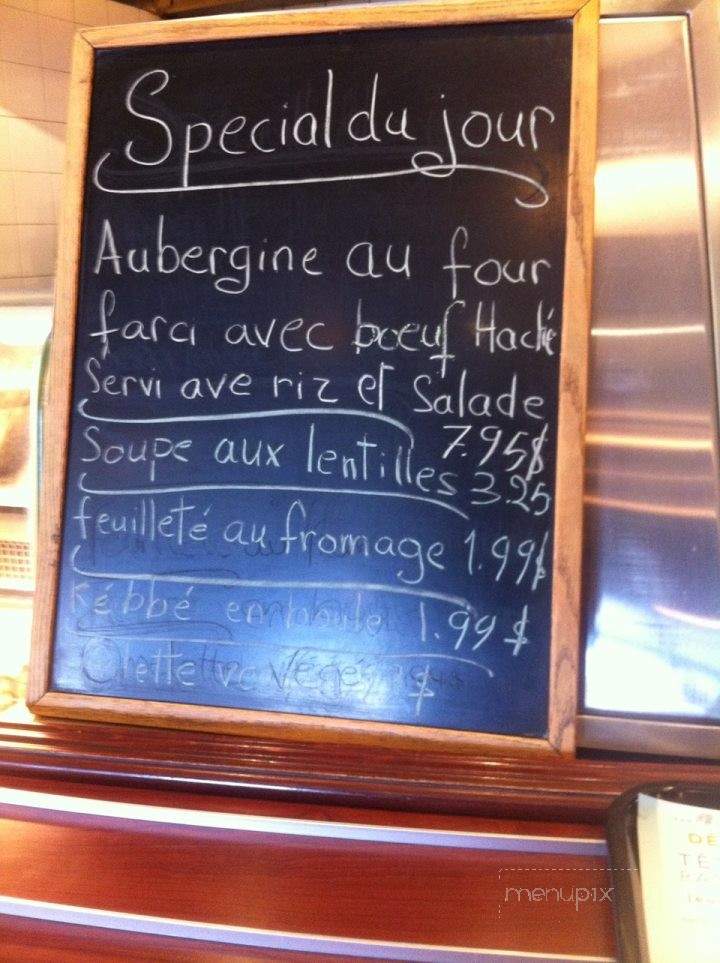 Special du jour
Aubergine au four
farci avec boeuf Haché
Servi ave riz et Salade
7.95$
Soupe aux lentilles 3.25
feuilleté au fromage 1.99$
Kébbé en boule 1.99$
$
DÉ
TÉ
menupix